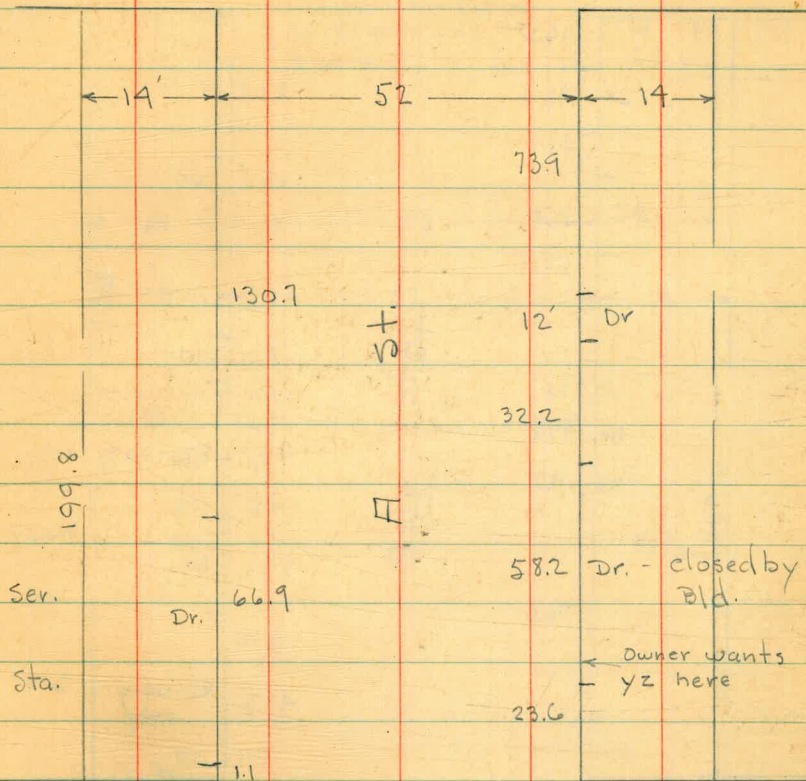 14'
52
14
73.9
130.7
12' Dr
32.2
A St.
199.8
58.2 Dr. - closed by
Bld.
Ser.
Dr. 66.9
Owner wants
yz here
Sta.
23.6
1.1